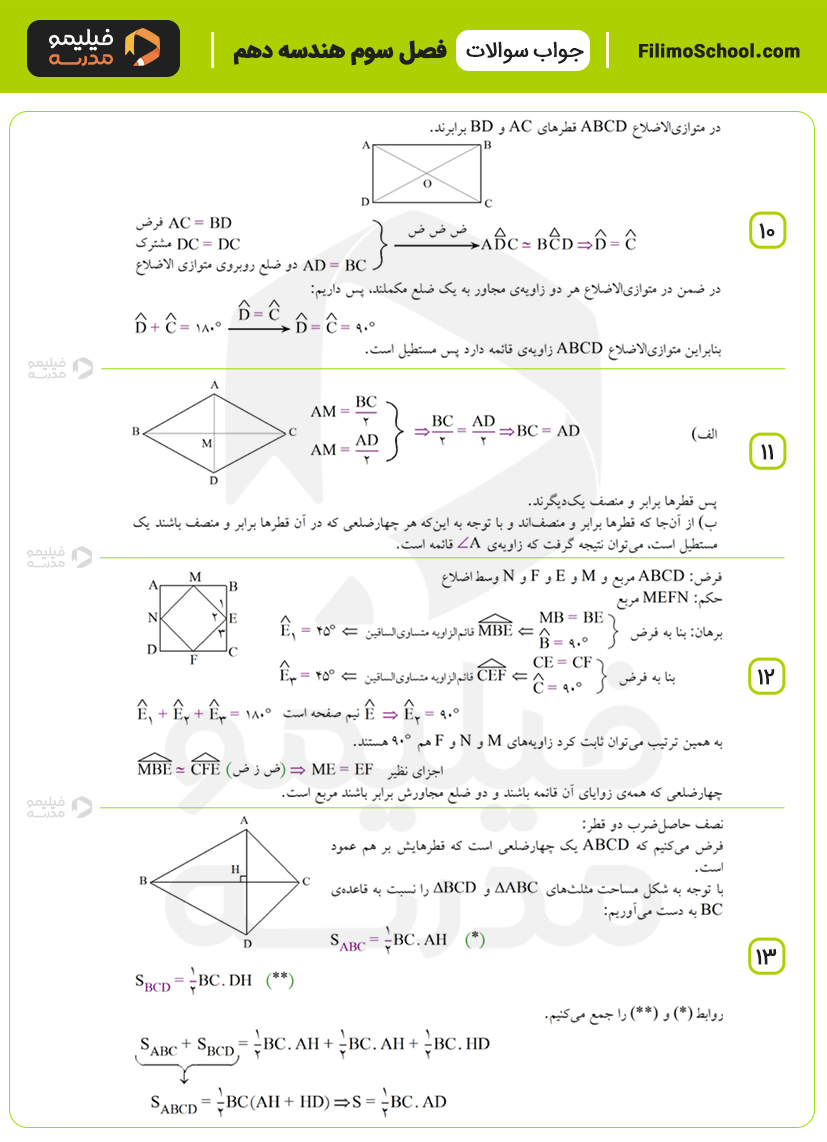 فیلیمو
مدرسه
جواب سوالات فصل سوم هندسه دهم
FilimoSchool.com
۱۰
در متوازی‌الاضلاع ABCD قطرهای AC و BD برابرند.
A B
O
D C
AC = BD فرض
DC = DC مشترک
AD = BC دو ضلع روبروی متوازی الاضلاع
ض ض ض
ADC ≃ BCD ⇒ D̂ = Ĉ
در ضمن در متوازی‌الاضلاع هر دو زاویه‌ی مجاور به یک ضلع مکملند، پس داریم:
D̂ + Ĉ = ۱۸۰° D̂ = Ĉ → D̂ = Ĉ = ۹۰°
بنابراین متوازی‌الاضلاع ABCD زاویه‌ی قائمه دارد پس مستطیل است.
فیلیمو
مدرسه
۱۱
الف)
A
B M C
D
AM = BC/۲
AM = AD/۲
⇒ BC/۲ = AD/۲ ⇒ BC = AD
پس قطرها برابر و منصف یک‌دیگرند.
ب) از آن‌جا که قطرها برابر و منصف‌اند و با توجه به این‌که هر چهارضلعی که در آن قطرها برابر و منصف باشند یک
مستطیل است، می‌توان نتیجه گرفت که زاویه‌ی ∠A قائمه است.
فیلیمو
مدرسه
۱۲
فرض: ABCD مربع و M و E و F و N وسط اضلاع
حکم: MEFN مربع
A M B
N ۱ ۲ ۳ E
D F C
برهان: بنا به فرض MB = BE
B̂ = ۹۰° ⇐ MBE قائم‌الزاویه متساوی‌الساقین ⇐ Ê₁ = ۴۵°
بنا به فرض CE = CF
Ĉ = ۹۰° ⇐ CEF قائم‌الزاویه متساوی‌الساقین ⇐ Ê₃ = ۴۵°
Ê₁ + Ê₂ + Ê₃ = ۱۸۰° نیم صفحه است Ê ⇒ Ê₂ = ۹۰°
به همین ترتیب می‌توان ثابت کرد زاویه‌های M و N و F هم ۹۰° هستند.
MBE ≃ CFE (ض ز ض) ⇒ ME = EF اجزای نظیر
چهارضلعی که همه‌ی زوایای آن قائمه باشند و دو ضلع مجاورش برابر باشند مربع است.
فیلیمو
مدرسه
۱۳
نصف حاصل‌ضرب دو قطر:
فرض می‌کنیم که ABCD یک چهارضلعی است که قطرهایش بر هم عمود
است.
با توجه به شکل مساحت مثلث‌های ΔABC و ΔBCD را نسبت به قاعده‌ی
BC به دست می‌آوریم:
A
H
B C
D
S_ABC = ۱/۲ BC.AH (*)
S_BCD = ۱/۲ BC.DH (**)
روابط (*) و (**) را جمع می‌کنیم.
S_ABC + S_BCD = ۱/۲ BC.AH + ۱/۲ BC.AH + ۱/۲ BC.HD
S_ABCD = ۱/۲ BC(AH + HD) ⇒ S = ۱/۲ BC.AD
فیلیمو
مدرسه